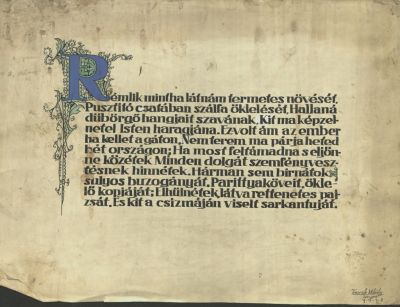 Rémlik mintha látnám termetes növését,
Pusztító csatában szálfa öklelését, Hallaná
dübörgő hangjait szavának, Kit ma képzel-
netel Isten haragjána. Ez volt ám az ember
ha kellet a gáton, Nem terem ma párja heted
hét országon; Ha most feltámadna s eljőn-
ne közétek Minden dolgát szemfényvesz-
tésnek hinnétek. Hárman sem birnátok
sulyos buzogányát, Parittyaköveit, ökle-
lő kopjáját; Elhülnétek, látva rettenetes pai-
zsát, És kit a csizmáján viselt sarkantuját.